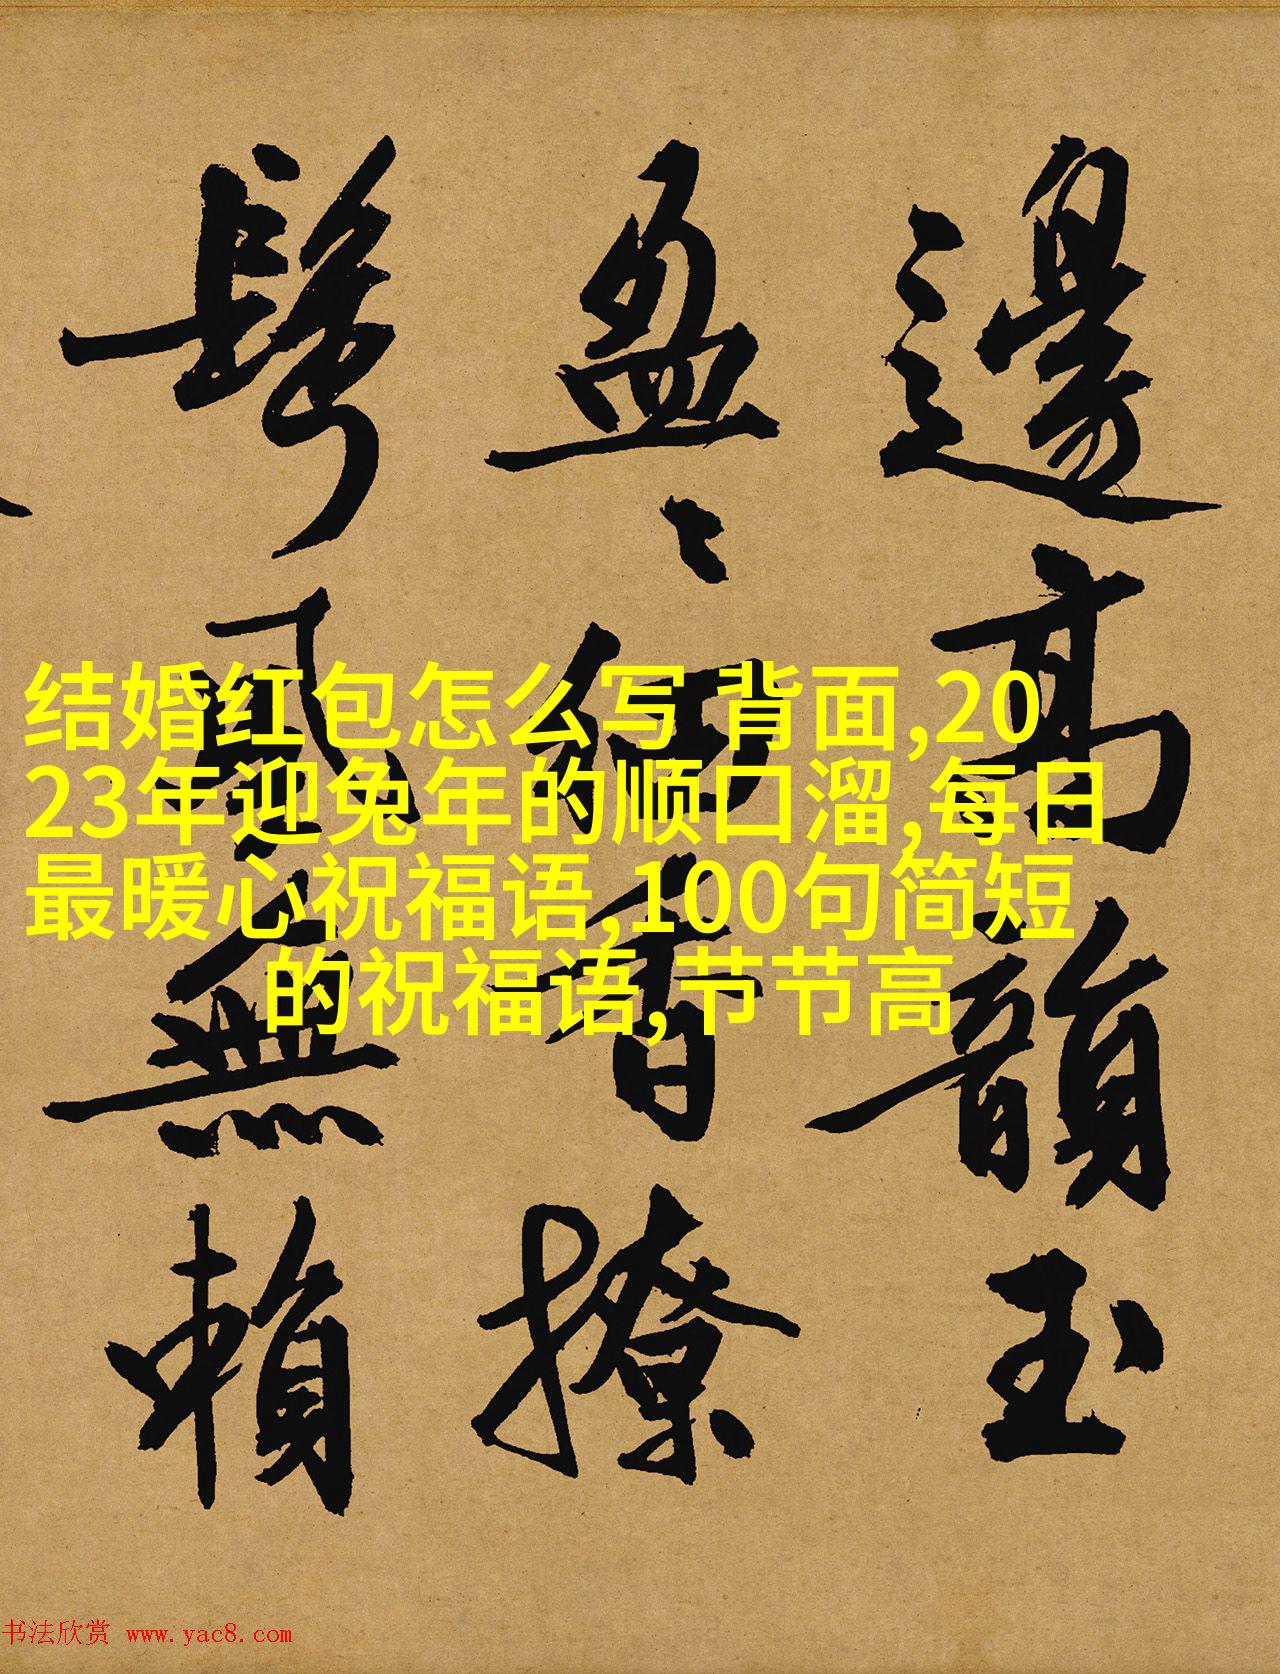 邊高韻玉
盈〻細香撩
鬢風無賴
结婚红包怎么写 背面,20
23年迎兔年的顺口溜,每日
最暖心祝福语,100句简短
的祝福语,节节高
书法欣赏 www.yac8.com